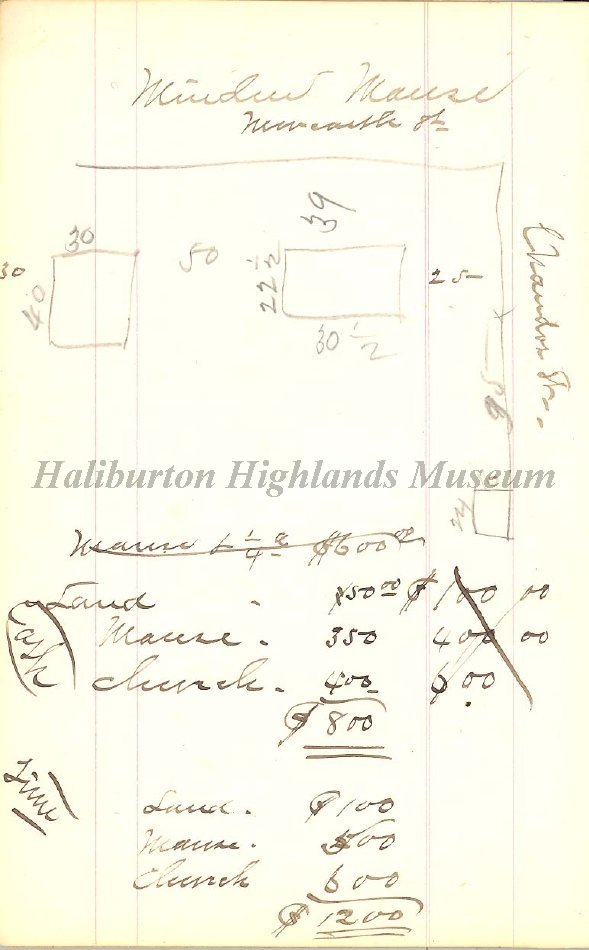 Minden Manse
Newcastle St
39
30
50
22 1/2
25
30
40
30 1/2
Chandos St.
Haliburton Highlands Museum
24
Manse $600 00
Land - $50 00 $100 00
Cash
Manse - 350 400 00
Church - 400 600
$800
Time
Land - $100
Manse - 500
Church 600
$1200